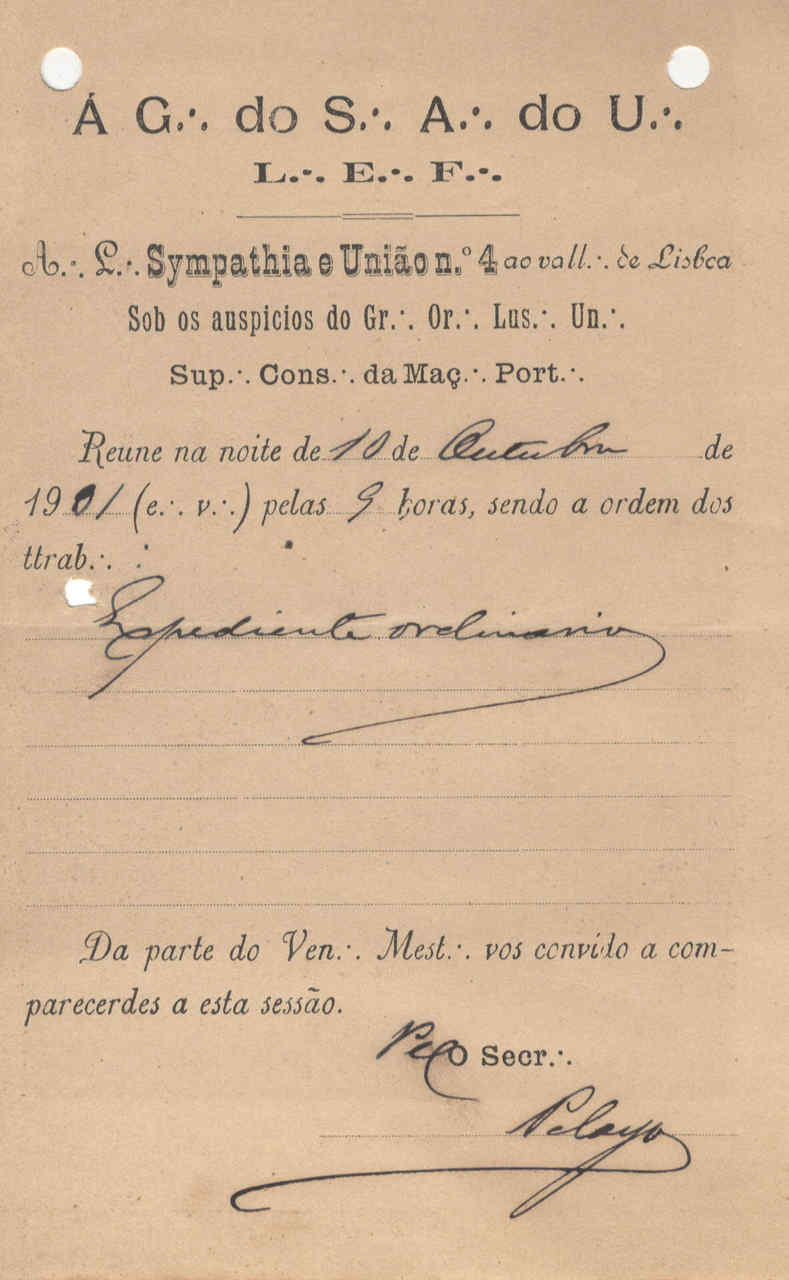 Á G.·. do S.·. A.·. do U.·.
L.·. E.·. F.·.
A.·. L.·. Sympathia e União n.º 4 ao vall.·. de Lisboa
Sob os auspicios do Gr.·. Or.·. Lus.·. Un.·.
Sup.·. Cons.·. da Maç.·. Port.·.
Reune na noite de 10 de Outubro de
1901 (e.·. v.·.) pelas 9 horas, sendo a ordem dos
ttrab.·. :
Expediente ordinario
Da parte do Ven.·. Mest.·. vos convido a com-
parecerdes a esta sessão.
Pelo Secr.·.
Pelayo